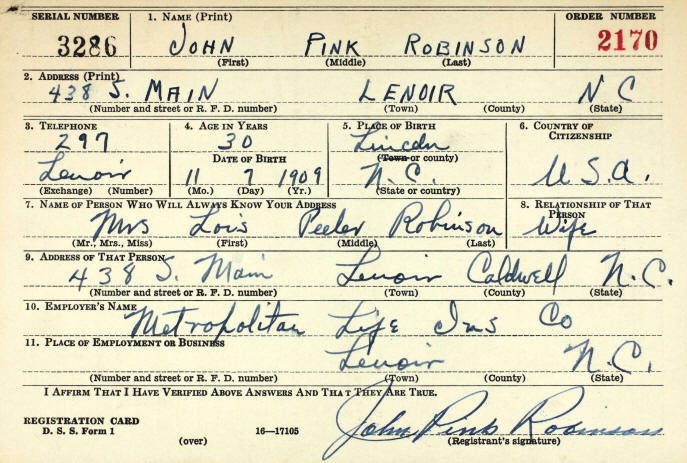 SERIAL NUMBER 1. NAME (Print) ORDER NUMBER
3286 JOHN PINK ROBINSON 2170
(First) (Middle) (Last)
2. ADDRESS (Print)
438 S. MAIN LENOIR N C
(Number and street or R. F. D. number) (Town) (County) (State)
3. TELEPHONE 4. AGE IN YEARS 5. PLACE OF BIRTH 6. COUNTRY OF CITIZENSHIP
297 30 Lincoln
DATE OF BIRTH (Town or county)
Lenoir 11 7 1909 N.C. U.S.A.
(Exchange) (Number) (Mo.) (Day) (Yr.) (State or country)
7. NAME OF PERSON WHO WILL ALWAYS KNOW YOUR ADDRESS 8. RELATIONSHIP OF THAT PERSON
Mrs Lois Peeler Robinson Wife
(Mr., Mrs., Miss) (First) (Middle) (Last)
9. ADDRESS OF THAT PERSON
438 S. Main Lenoir Caldwell N.C.
(Number and street or R. F. D. number) (Town) (County) (State)
10. EMPLOYER'S NAME
Metropolitan Life Ins Co
11. PLACE OF EMPLOYMENT OR BUSINESS
Lenoir N.C.
(Number and street or R. F. D. number) (Town) (County) (State)
I AFFIRM THAT I HAVE VERIFIED ABOVE ANSWERS AND THAT THEY ARE TRUE.
REGISTRATION CARD
D. S. S. Form 1 John Pink Robinson
(over) 16—17105 (Registrant's signature)